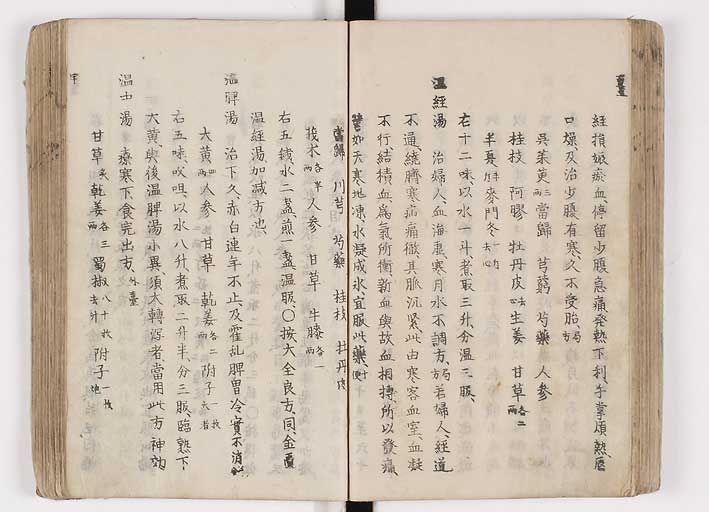 經損娠瘀血停留少腹急痛發熱下利手掌煩熱唇
口燥及治少腹有寒久不受胎
吳茱萸三兩當歸 芎藭 芍藥 人參
桂枝 阿膠 牡丹皮 生姜 甘草各二兩
半夏半升麥門冬一升去心
右十二味以水一斗煮取三升分溫三服
溫經湯 治婦人血海虛寒月水不調方 若婦人經道
不通繞臍寒疝痛徹其脉沉緊此由寒客血室血凝
不行結積血為氣所衝新血與故血相摶所以發痛
譬如天寒地凍水凝成氷宜服此藥
當歸 川芎 芍藥 桂枝 牡丹皮
莪朮各半兩人參 甘草 牛膝各一兩
右五錢水二盞煎一盞溫服〇按大全良方同金匱
溫經湯加減方也
溫脾湯 治下久赤白連年不止及霍亂脾胃冷實不消
大黃四兩人參 甘草 乾姜各二兩附子一枚大者
右五味㕮咀以水八升煮取二升半分三服臨熟下
大黃與後溫脾湯小異須大轉瀉者當用此方神効
溫中湯 療寒下食完出方外臺
甘草炙 乾姜各三兩蜀椒八十枚去汗附子一枚炮